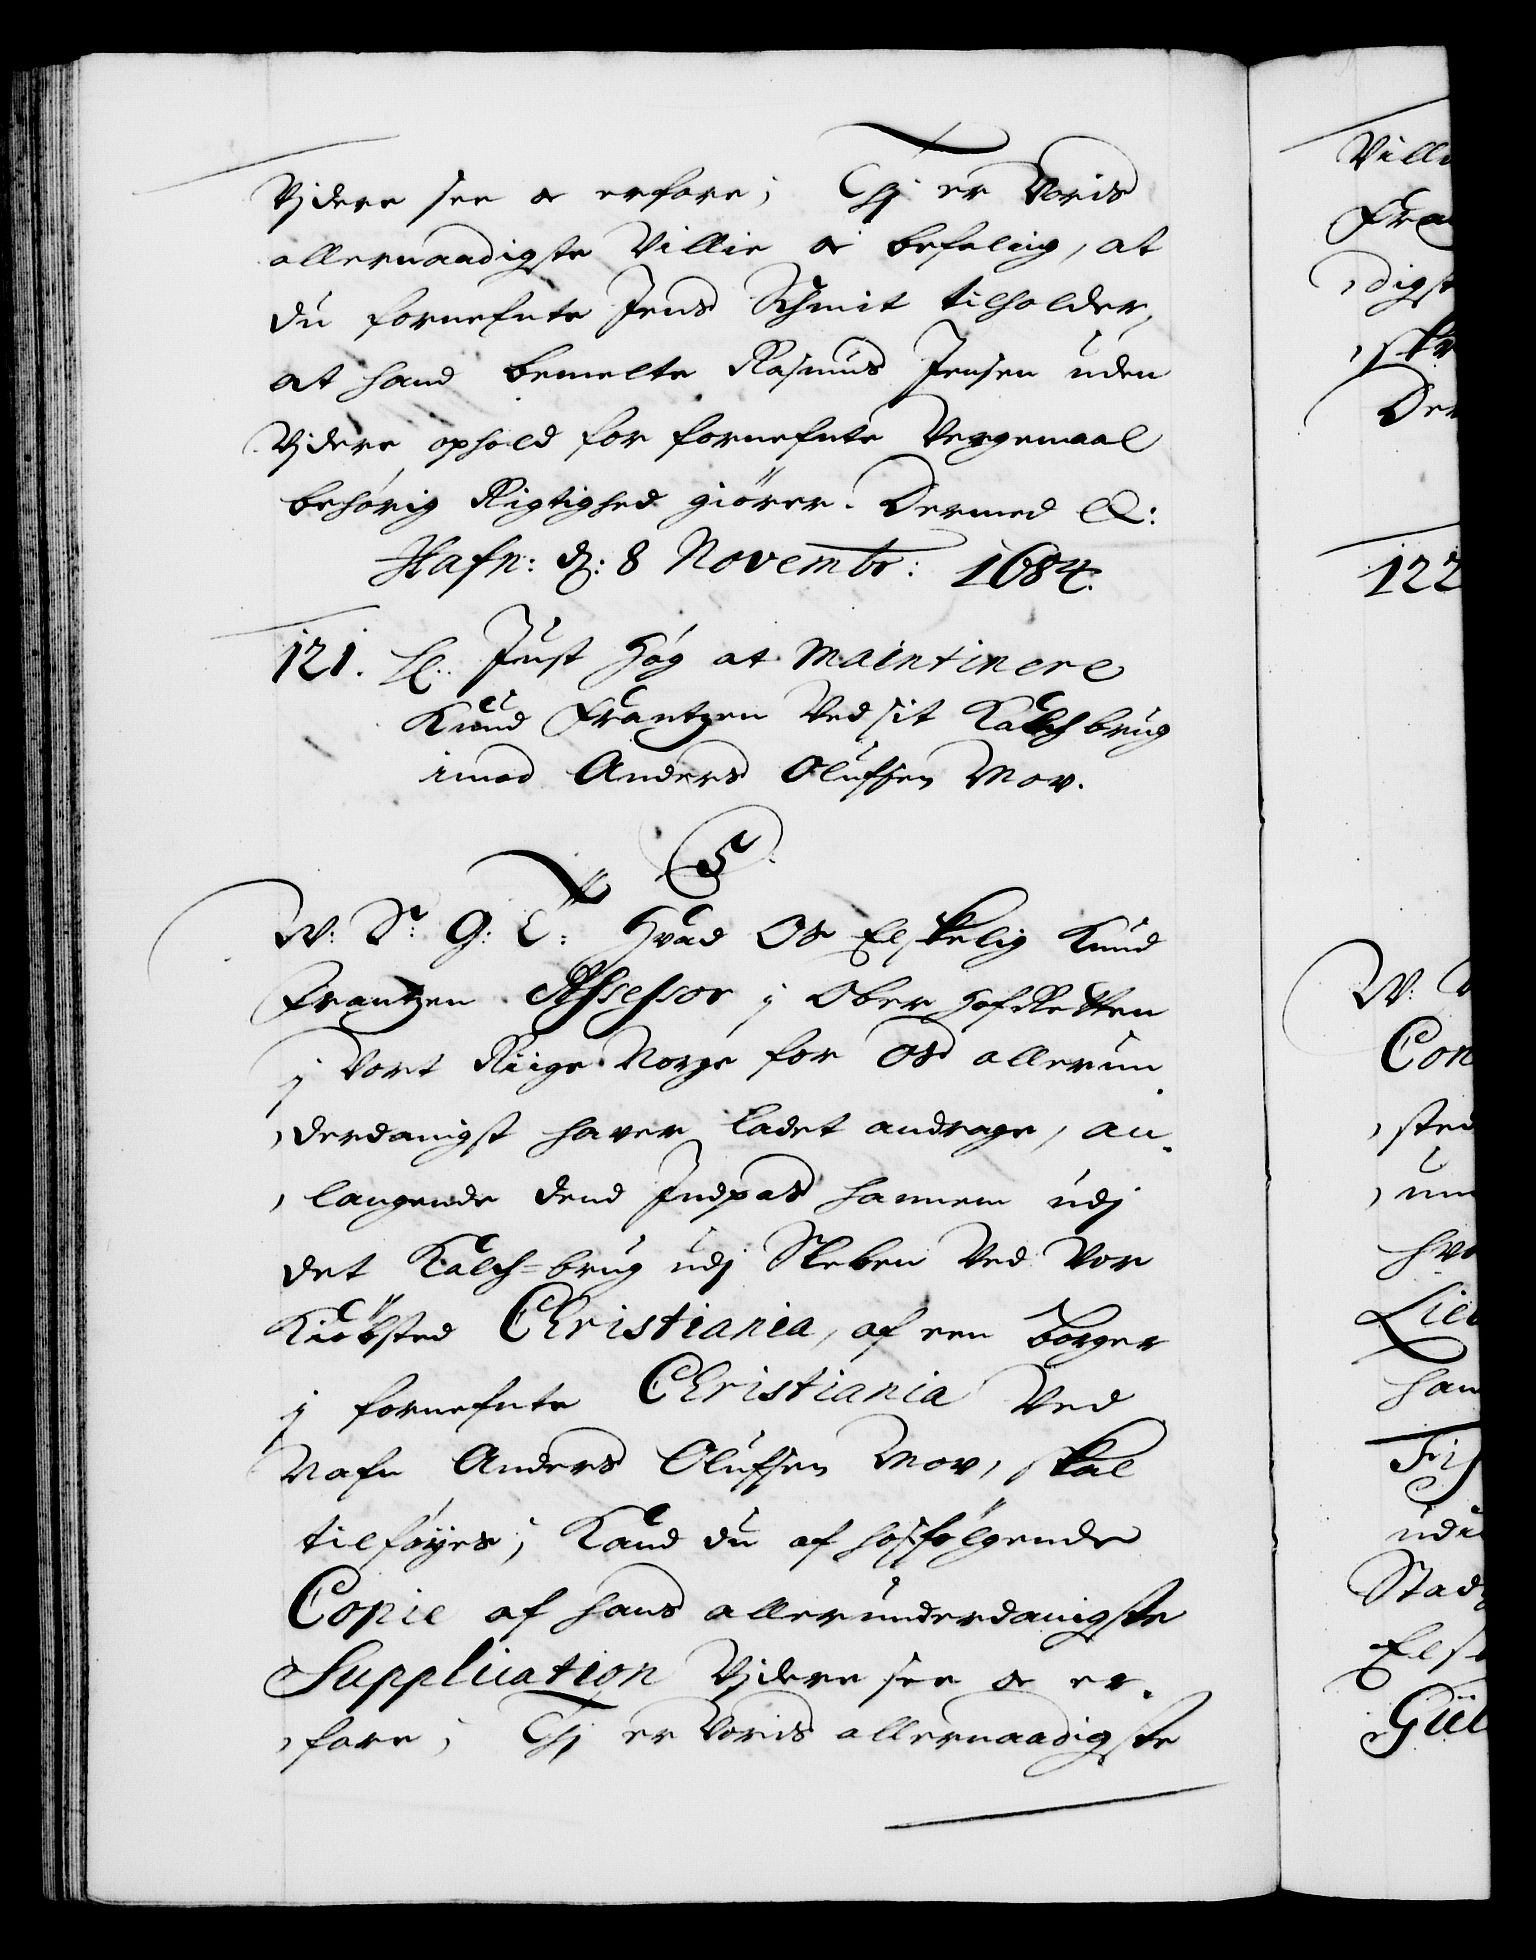 Vjdere see oc erfare; Thj er Voris
allernaadigste Villie oc befaling, at
du fornefnte Jens Schmit tilholder,
at hand bemelte Rasmus Jensen uden
Vjdere ophold for fornefnte Vergemaal
behörig Rigtighed giörer. Dermed &:
Hafn: d: 8 Novembr: 1684.
121. Just Høg at Maintinere
Knud Frantzen Ved sit Kalch brug
imod Anders Olufsen Mov.
C 5
W: Sr: G: T: Hvad Os Elskelig Knud
Frantzen Assessor j Ober Hof Retten
j Vort Riige Norge for Os allerun
derdanigst haver ladet andrage, an-
langende dend Indpas hannem udj
det Kalch=brug udj Sleben Ved Vor
Kiöbsted Christiania, af een borger
j fornefnte Christiania Ved
Nafn Anders Olufsen Mov, skal
tilføyes; Kand du af hosfølgende
Copie af hans allerunderdanigste
Supplication Vjdere see oc er-
fare; Thj er Voris allernaadigste
Ville
digst
Der
122
W:
Con
sted
hvo
Lieb
han
Stad
Elsk
Gül